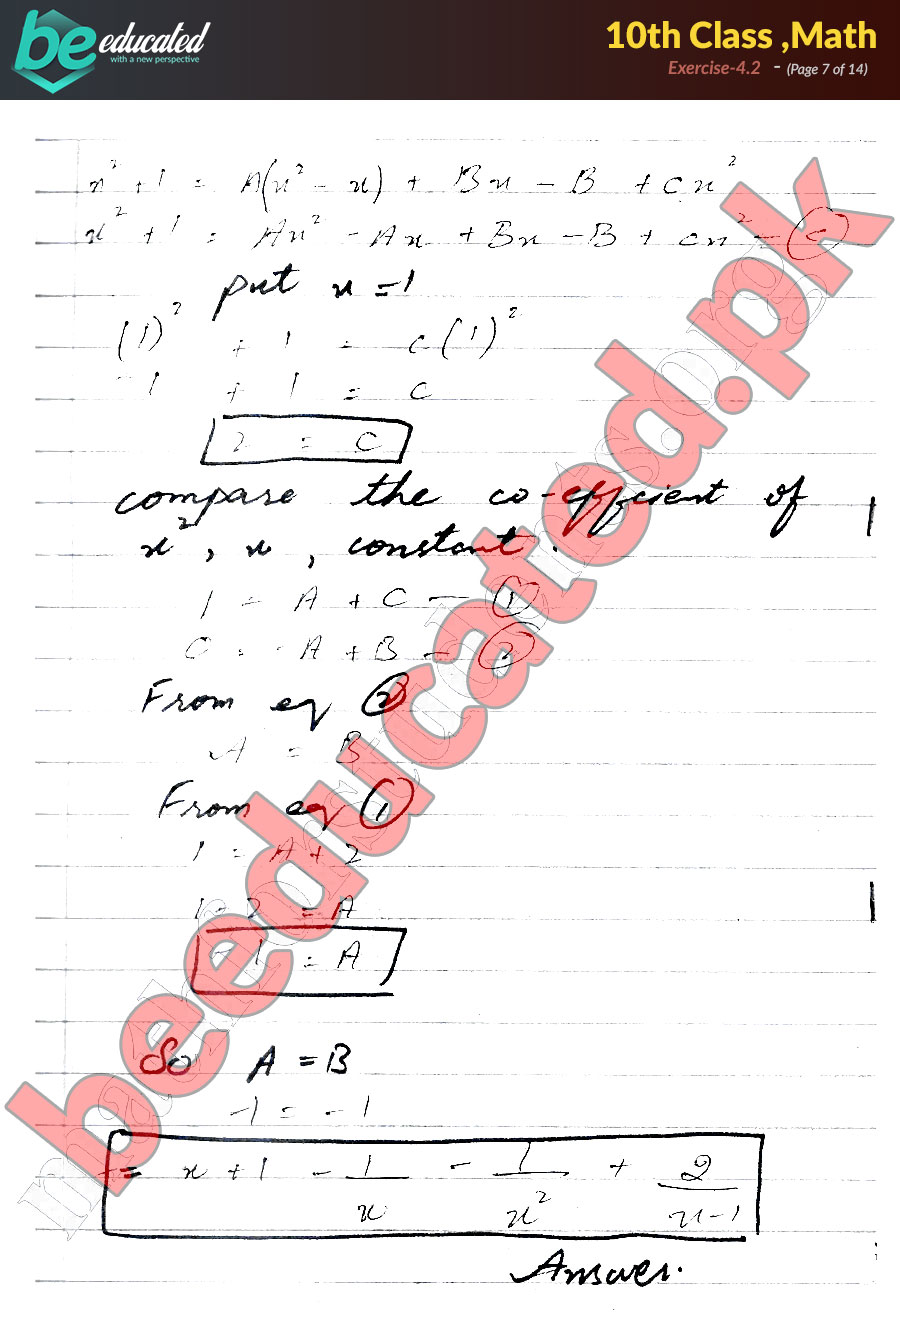 be educated
with a new perspective
10th Class ,Math
Exercise-4.2 - (Page 7 of 14)
x² + 1 = A(x² - x) + Bx - B + Cx²
x² + 1 = Ax² - Ax + Bx - B + Cx² - (C)
put x = 1
(1)² + 1 = C(1)²
1 + 1 = C
2 = C
compare the co-efficient of
x², x, constant.
1 = A + C - (1)
0 = -A + B - (2)
From eq (2)
A = B
From eq (1)
1 = A + 2
1 - 2 = A
-1 = A
So A = B
-1 = -1
= x + 1 - 1/x - 1/x² + 2/(x-1)
Answer.
beeducated.pk